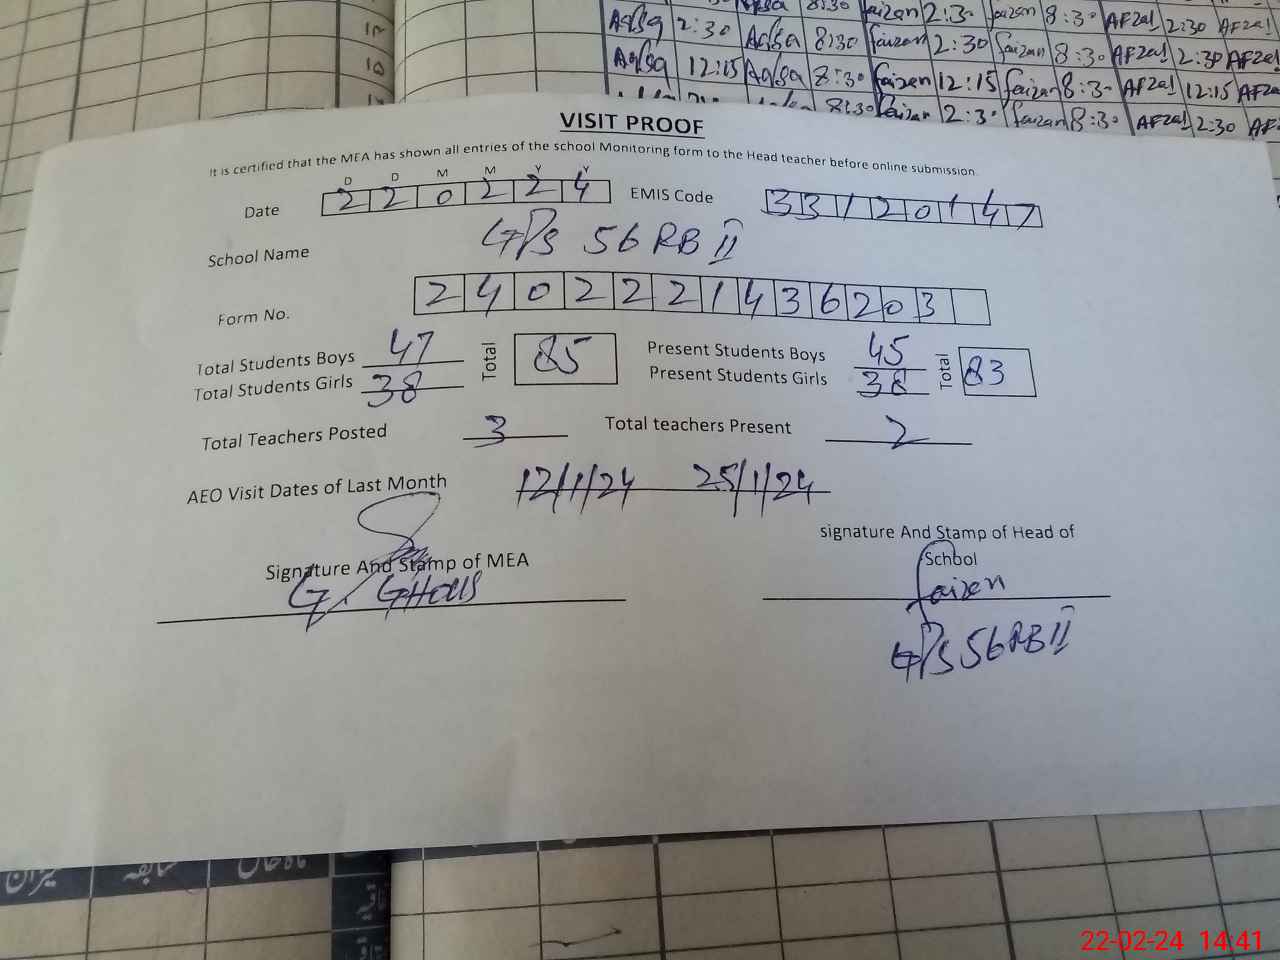 Aqsa 8:30 faizan 2:30 faizan 8:30 AFzal 2:30 AFzal
Aqsa 2:30 Aqsa 8:30 faizan 2:30 faizan 8:30 AFzal 2:30 AFzal
Aqsa 12:15 Aqsa 8:30 faizan 12:15 faizan 8:30 AFzal 12:15 AFzal
8:30 faizan 2:30 faizan 8:30 AFzal 2:30
VISIT PROOF
It is certified that the MEA has shown all entries of the school Monitoring form to the Head teacher before online submission.
D D M M Y Y
Date 220224 EMIS Code 33120147
School Name G/P/S 56 RB II
Form No. 2402221436203
Total Students Boys 47 Total 85 Present Students Boys 45 Total 83
Total Students Girls 38 Present Students Girls 38
Total Teachers Posted 3 Total teachers Present 2
AEO Visit Dates of Last Month 12/1/24 25/1/24
signature And Stamp of Head of
School
Signature And Stamp of MEA
G. GHOUS
faizan
G/P/S 56 RB II
میزان سابقہ ماہ حال
22-02-24 14:41